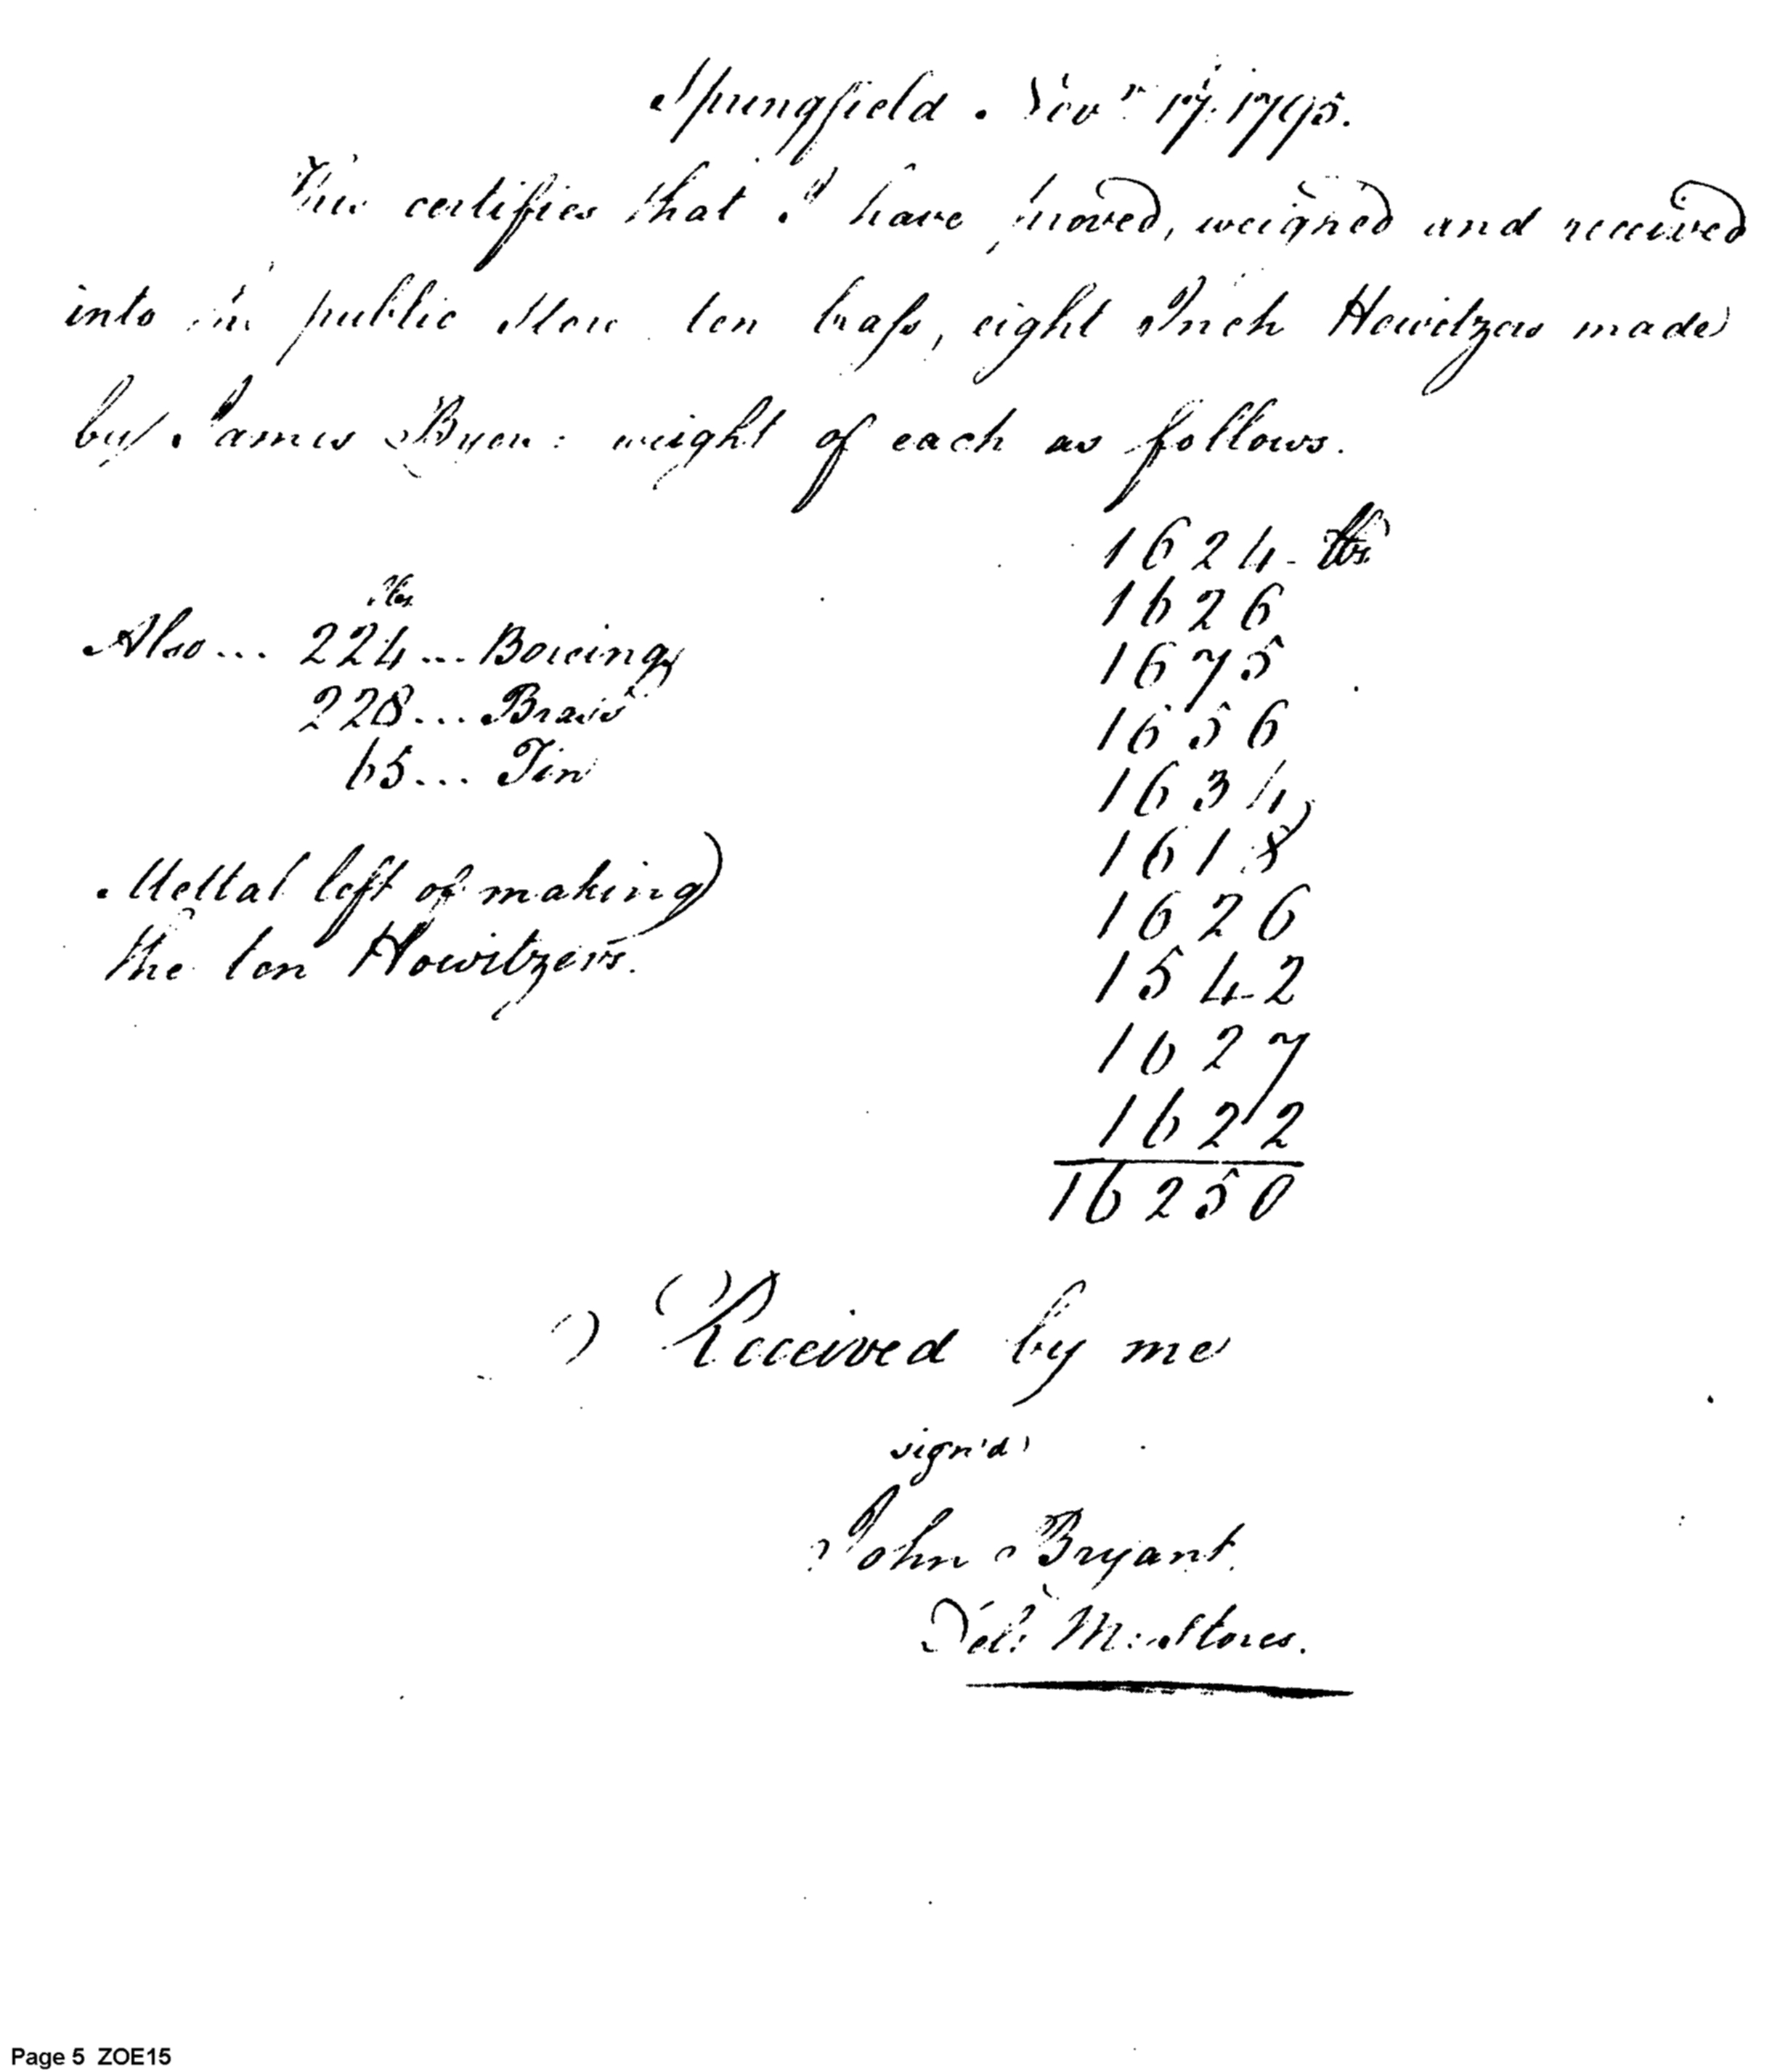 Springfield. Novr. 17. 1795.
This certifies that I have proved, weighed and received
into the public Store ten brass, eight Inch Howitzers made
by James Byers: weight of each as follows.
1624 lbs.
1626
1675
1656
1634
1618
1626
1542
1627
1622
16250
lbs
Also... 224... Boreings
228... Brass
65... Tin
Mettal left of making
the ten Howitzers.
Received by me
sign'd
John Bryant.
M: Stores.
Page 5 ZOE15